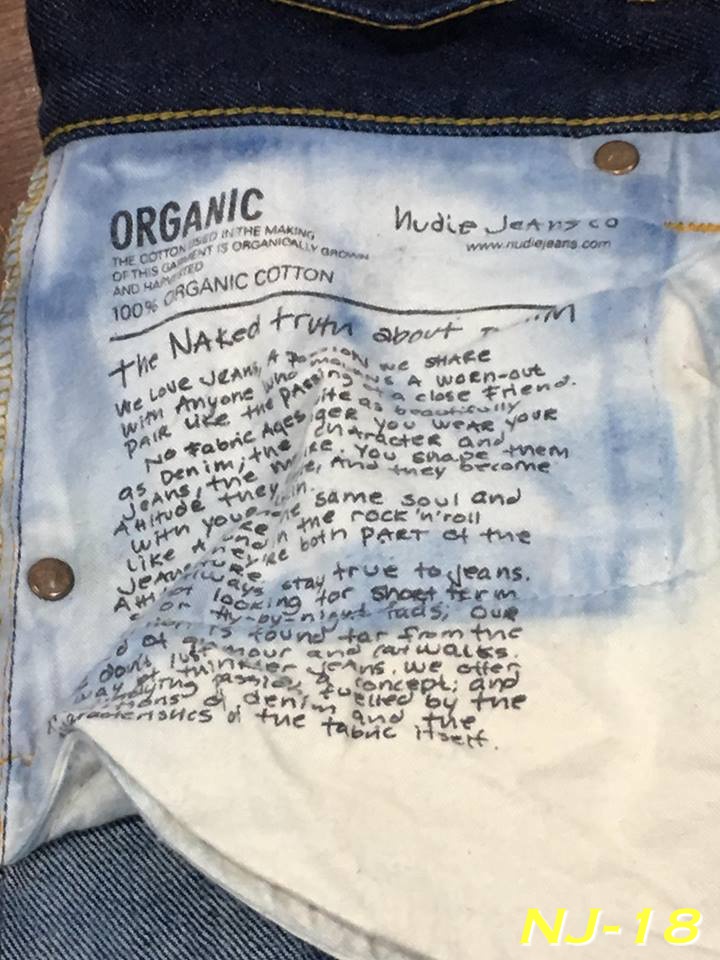 ORGANIC
THE COTTON USED IN THE MAKING
OF THIS GARMENT IS ORGANICALLY GROWN
AND HARVESTED
100% ORGANIC COTTON
Nudie Jeans co
www.nudiejeans.com
the NAKed truth about
We Love JEANS, A we SHARE
with Anyone who A worn-out
PAIR Like the PASsing of a close Friend.
No FAbric Ages as beautifully
as Denim; the you WEAR YOUR
JEANS, the character and
Attitude they You shape them
with your And they become
Like A same soul and
the rock'n'roll
they're both PART of the
Always stay true to Jeans.
looking for short term
or fly-by-night fads; our
is found far from the
and catwalks.
don't just jeans, we offer
way of a concept; and
passion fuelled by the
of denim and the
characteristics of the fabric itself.
NJ-18